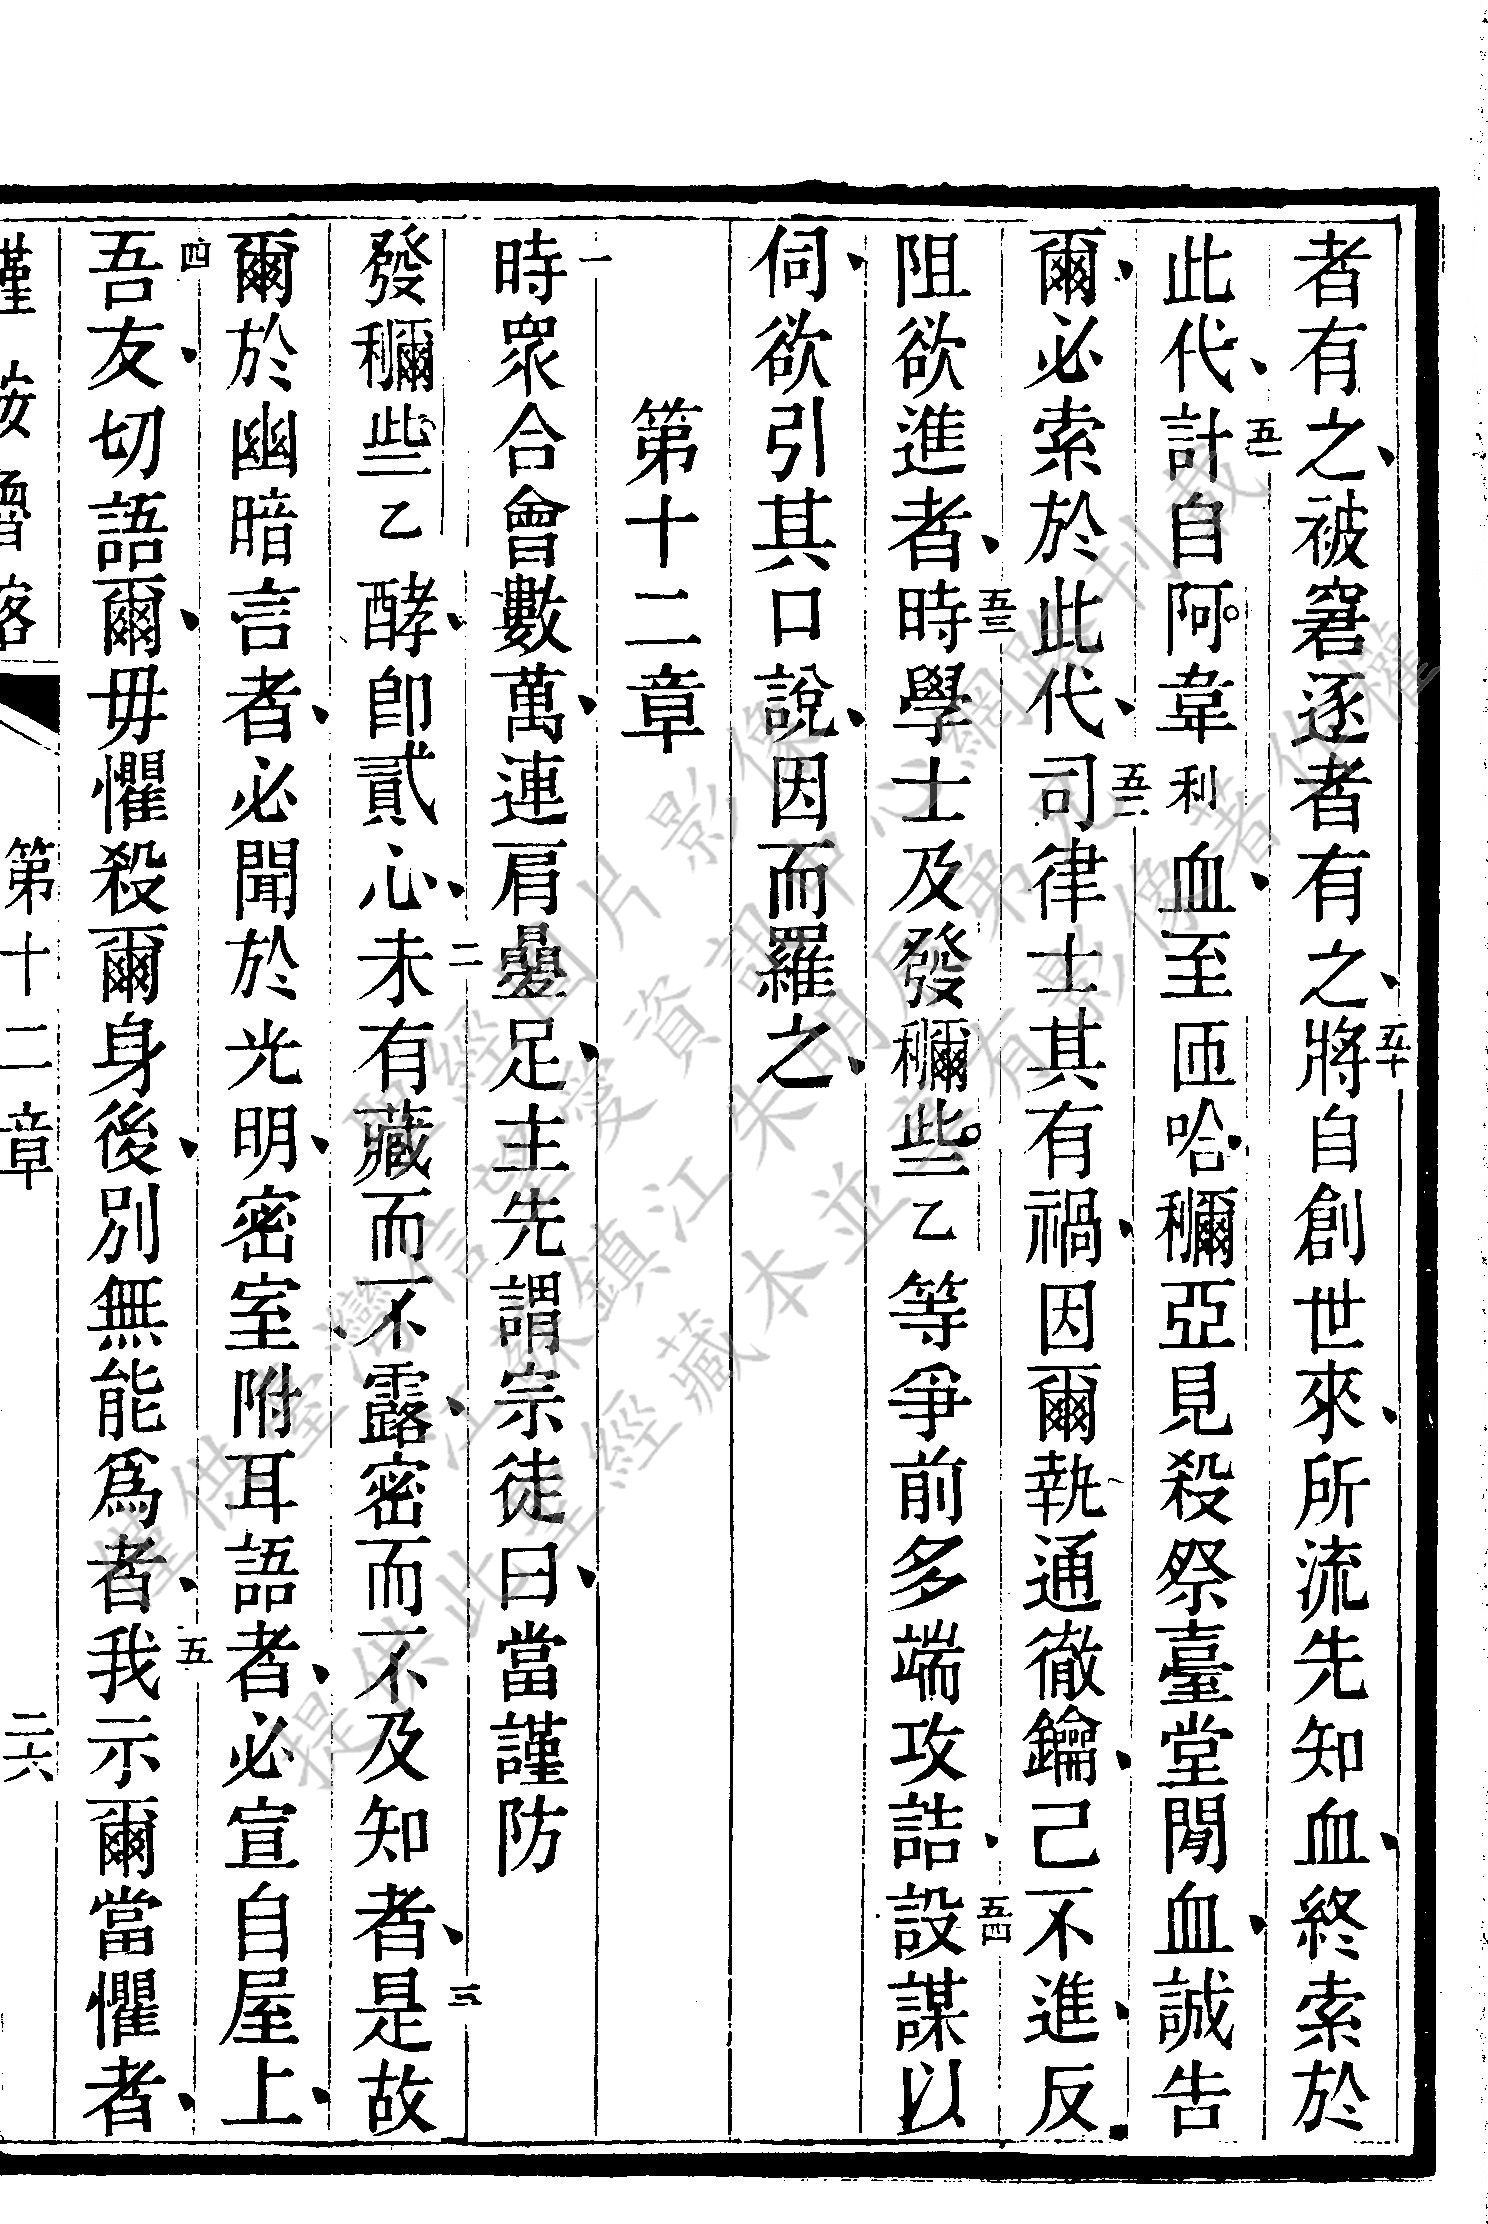 者有之、被窘逐者有之、五十將自創世來、所流先知血、終索於
此代、五一計自阿韋利血、至匝哈穪亞見殺祭臺堂閒血、誠告
爾、必索於此代、五二司律士其有禍、因爾執通徹鑰、己不進、反
阻欲進者、五三時學士及發穪些乙等爭前多端攻詰、五四設謀以
伺、欲引其口說、因而羅之、
第十二章
一時眾合會數萬、連肩疊足、主先謂宗徒曰、當謹防
發穪些乙酵、卽貳心、二未有藏而不露、密而不及知者、三是故
爾於幽暗言者、必聞於光明、密室附耳語者、必宣自屋上、
四吾友、切語爾、毋懼殺爾身後、別無能爲者、五我示爾當懼者、
第十二章
二六